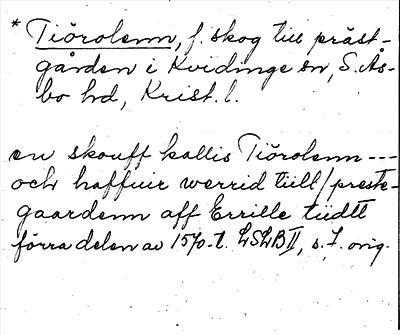 * Tiörolenn, f. skog till präst-
gården i Kvidinge sn, S. Ås-
bo hd, Krist. l.
en skouff kallis Tiörolenn ---
och haffuir werrid tiill / preste-
gaardenn aff Errille tiidtt
förra delen av 1570-t. LSLB II, s. 7. orig.